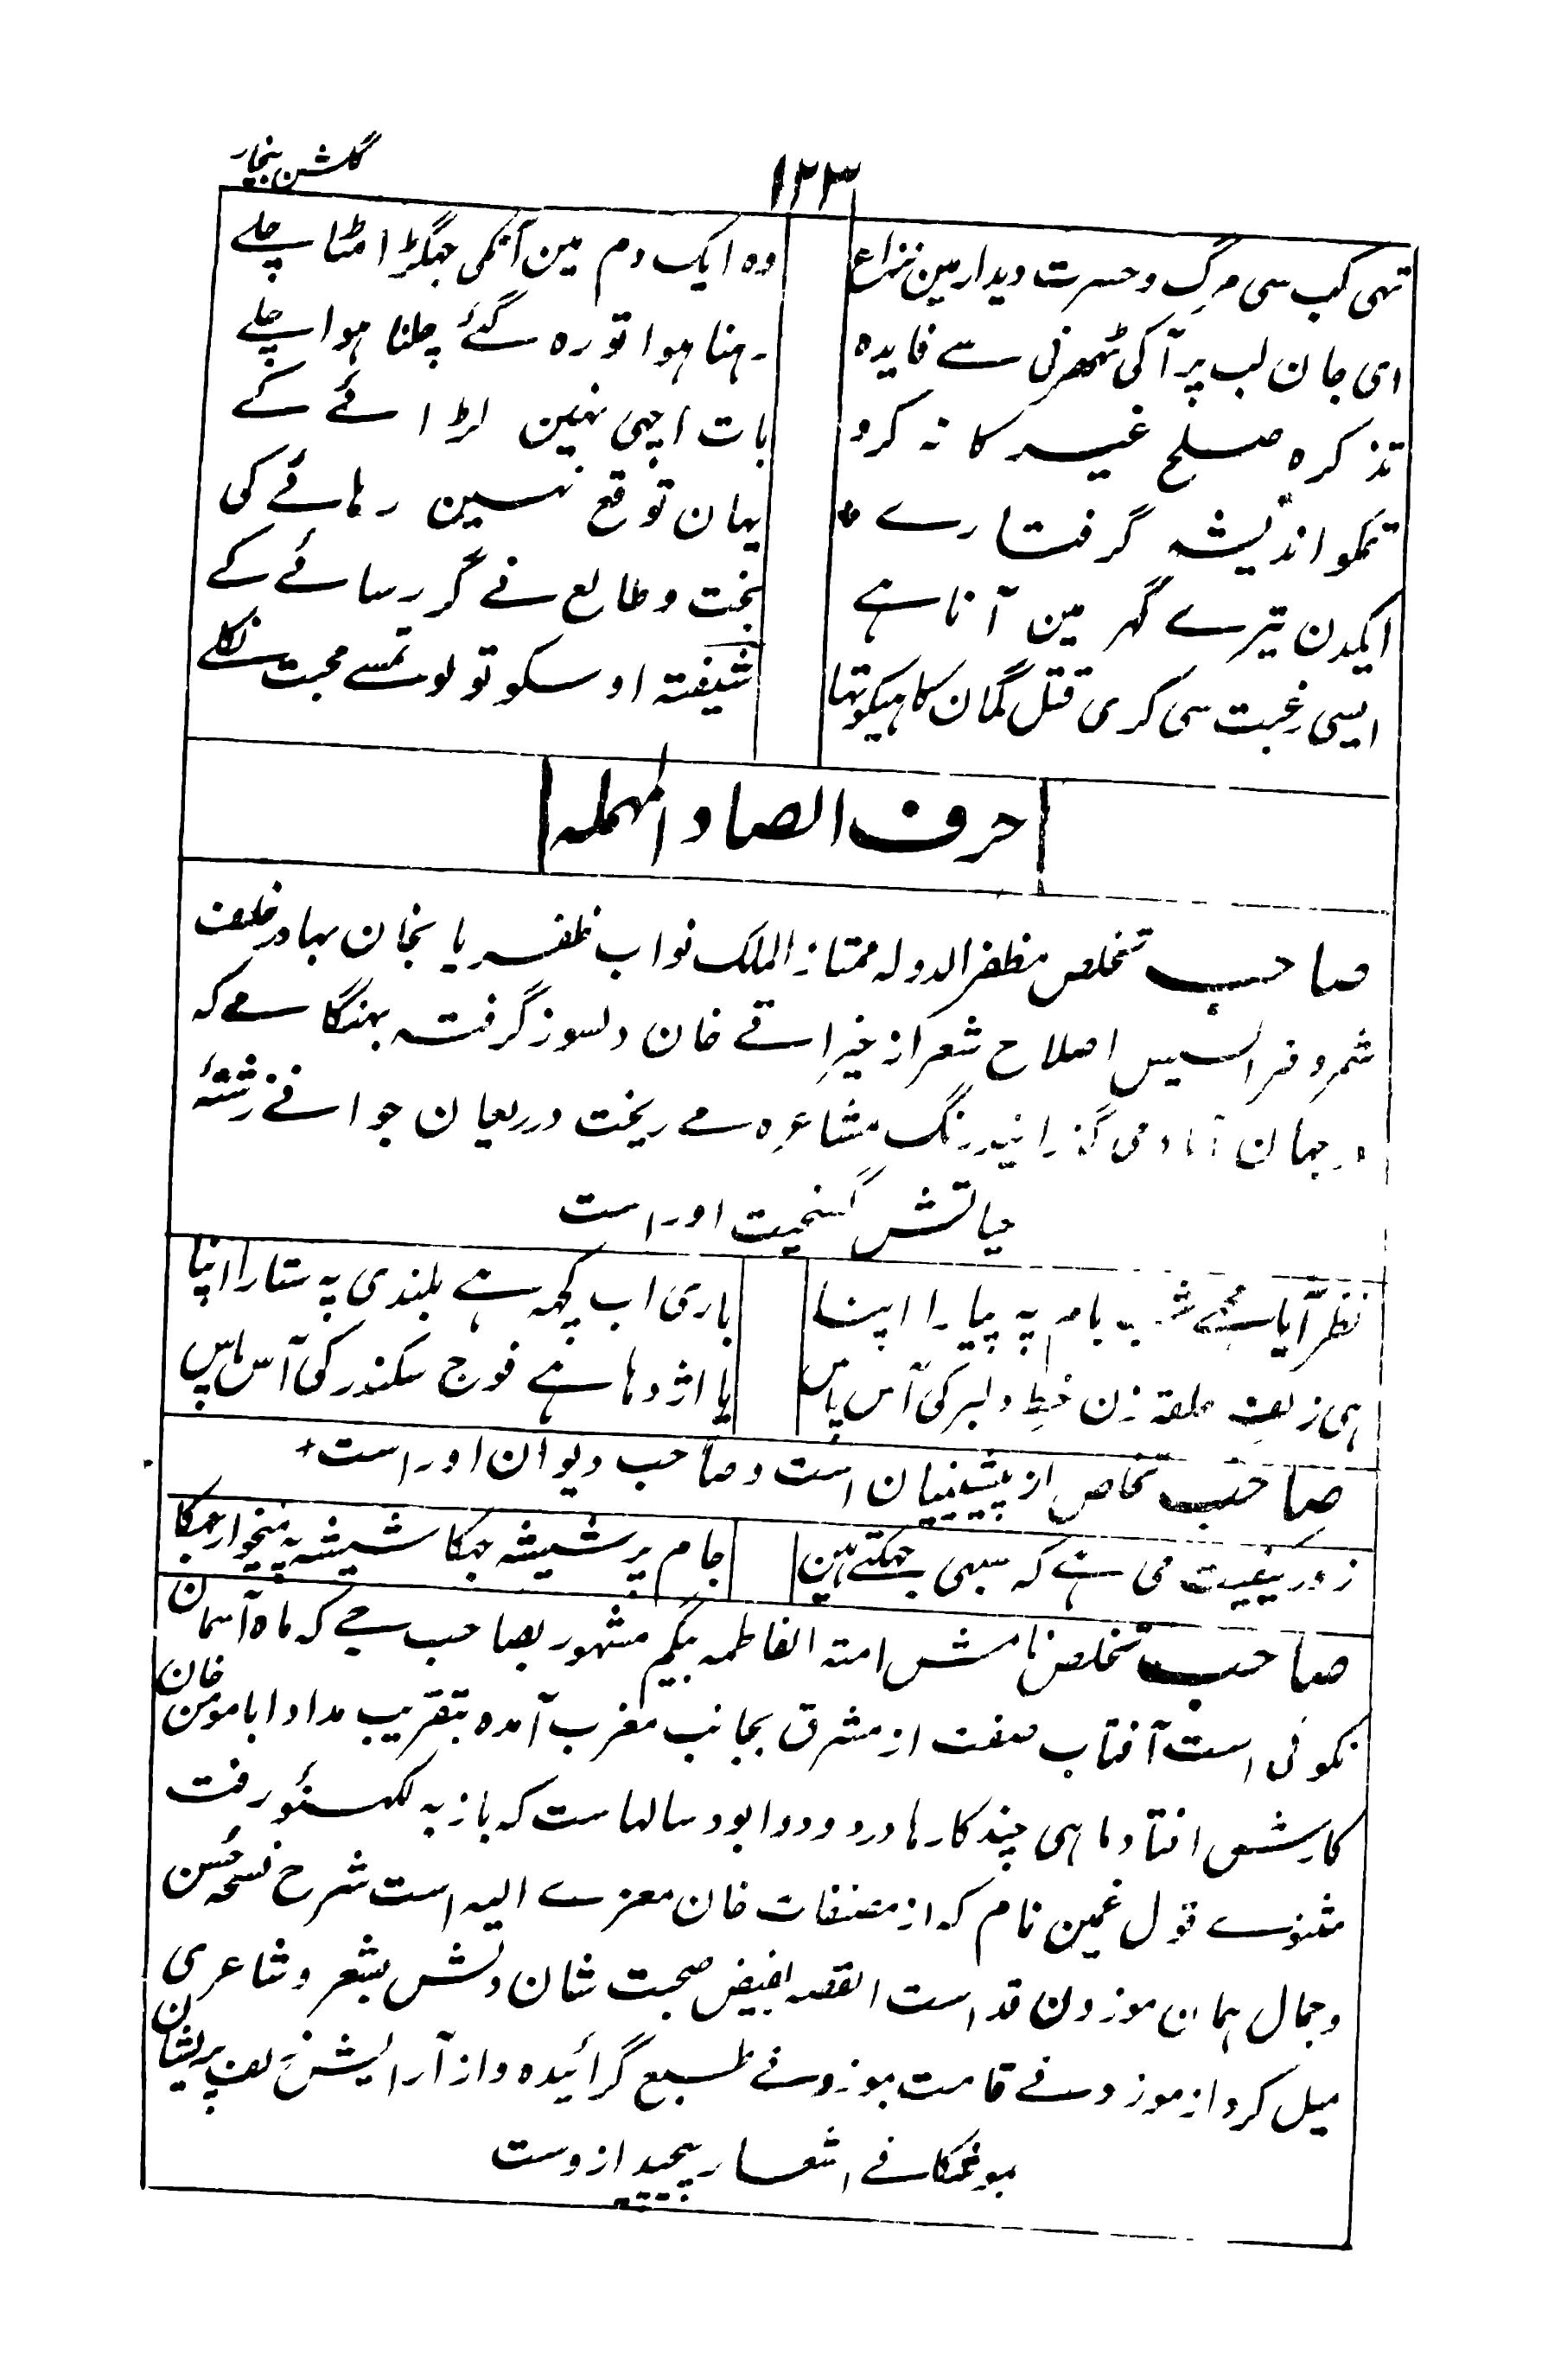 ۱۲۳
گلشن بیخار
تہی کب سی مرگ و حسرت دیدار مین نزاع
وہ ایک دم مین آنکی جہگڑا مٹا چلے
ای جان لب پر آ کی ٹہرنی سے فایدہ
رہنا ہوا تو رہ گئے چلنا ہوا چلے
تذکرہ صلح غیر کا نہ کرو
بات اچہی نہین لڑائے کے
تمکو اندیشہ گرفتارے
یہان توقع نہین رہائے کی
ایکدن تیرے گہر مین آنا ہے
بخت و طالع نے گر رسائے کے
ایسی رغبت سی کری قتل گمان کا ہیکو تہا
شیفتہ اوسکو تو لو تمسے محبت نکلے
حرف الصاد المہملہ
صاحب تخلص مظفر الدولہ ممتاز الملک نواب ظفریابخان بہادر خلف
شمرو فرانسیس اصلاح شعر از خیراتے خان دلسوز گرفتہ بہنگامے کہ
در جہان آباد می گذرانید رنگ مشاعرہ مے ریخت در ریعان جوانے رشتۂ
حیاتش گسیخت اوراست
نظر آیا مجھے شب بام پہ پیارا اپنا
باری اب کچہ ہے بلندی پہ ستارا اپنا
ہی زلف حلقہ زن خط دلبر کی آس پاس
یا اژدہا ہے فوج سکندر کی آس پاس
صاحب تخلص از پیشینیان است و صاحب دیوان اوراست
زور کیفیت می ہے کہ سبہی جہکتے ہین
جام پر شیشہ جہکا شیشہ پہ میخوار جہکا
صاحب تخلص نامش امتہ الفاطمہ بیگم مشہور بصاحب جے کہ ماہ آسمان
نکوئی است آفتاب صفت از مشرق بجانب مغرب آمدہ بتقریب مداوا با مومن خان
کارش افتاد ماہی چند کارہا درد و دوا بود سالہاست کہ باز بہ لکہنؤ رفت
مثنوے قول غمین نام کہ از مصنفات خان معزے الیہ است شرح نسخہ حسن
و جمال ہمان موزون قد است القصہ بفیض صحبت شان دلش بشعر و شاعری
میل کرد از موزونے قامت بموزونے طبع گرائیدہ و از آرایش زلف پریشان
بموشگافے اشعار پیچید ازوست